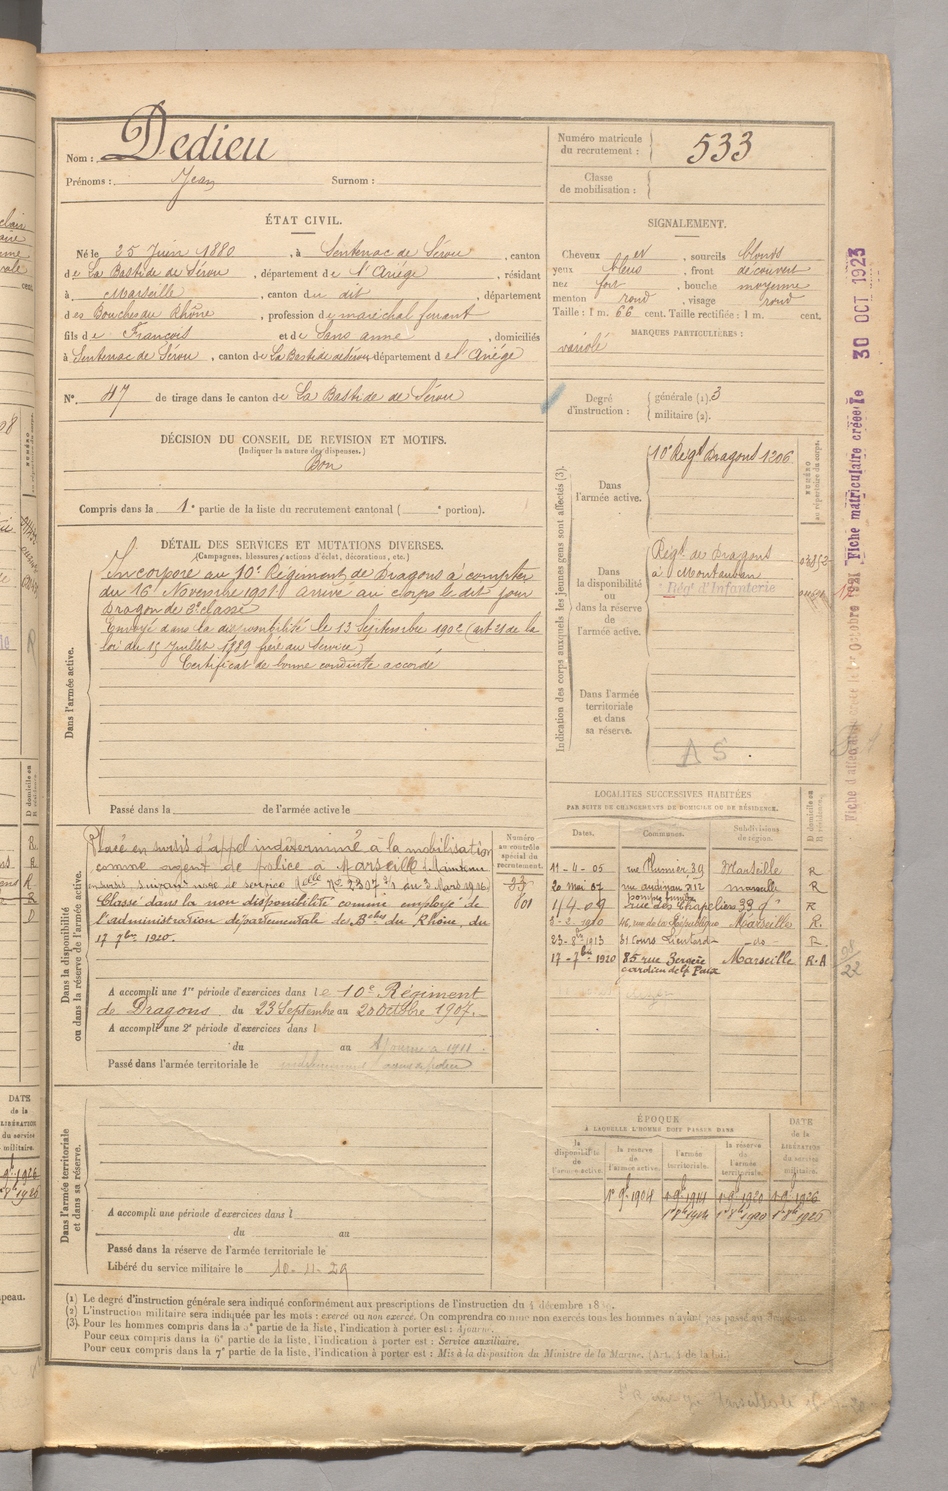 Nom : Dedieu
Prénoms : Jean Surnom :
Numéro matricule du recrutement : 533
Classe de mobilisation :
ÉTAT CIVIL.
Né le 25 Juin 1880, à Sentenac de Sérou, canton
de La Bastide de Sérou, département de l'Ariége, résidant
à Marseille, canton du dit, département
des Bouches du Rhône, profession de maréchal ferrant
fils de François et de Sans anne, domiciliés
à Sentenac de Sérou, canton de La Bastide de Sérou département de l'Ariége
N°. 47 de tirage dans le canton de La Bastide de Sérou
SIGNALEMENT.
Cheveux et, sourcils blonds
yeux bleus, front découvert
nez fort, bouche moyenne
menton rond, visage rond
Taille : 1 m. 66 cent. Taille rectifiée : 1 m. cent.
MARQUES PARTICULIÈRES :
variolé
Degré d'instruction : générale (1). 3
militaire (2).
DÉCISION DU CONSEIL DE REVISION ET MOTIFS.
(Indiquer la nature des dispenses.)
Bon
Compris dans la 1e partie de la liste du recrutement cantonal ( e portion).
DÉTAIL DES SERVICES ET MUTATIONS DIVERSES.
(Campagnes, blessures, actions d'éclat, décorations, etc.)
Dans l'armée active.
Incorporé au 10e Régiment de Dragons à compter
du 16 Novembre 1901 arrivé au corps le dit jour
Dragon de 2e classe
Envoyé dans la disponibilité le 13 Septembre 1902 (art 21 de la
loi du 15 Juillet 1889 frère au service)
Certificat de bonne conduite accordé
Passé dans la de l'armée active le
Indication des corps auxquels les jeunes gens sont affectés (3).
NUMÉRO au répertoire du corps.
Dans l'armée active.
10e Régt Dragons 1206
Dans la disponibilité ou dans la réserve de l'armée active.
Régt de Dragons
à Montauban
Régt d'Infanterie
Dans l'armée territoriale et dans sa réserve.
AS
Dans la disponibilité ou dans la réserve de l'armée active.
Numéro au contrôle spécial du recrutement.
Placé en sursis d'appel indéterminé à la mobilisation
comme agent de police à Marseille. Maintenu
en sursis suivant note de service
du 3 Mars 1916.
Classé dans la non disponibilité comme employé de
l'administration départementale des B.ches du Rhône, du
17 7bre 1920.
A accompli une 1re période d'exercices dans le 10e Régiment
de Dragons du 23 Septembre au 20 Octobre 1907.
A accompli une 2e période d'exercices dans l
du au Ajourné à 1911
Passé dans l'armée territoriale le
LOCALITÉS SUCCESSIVES HABITÉES
PAR SUITE DE CHANGEMENTS DE DOMICILE OU DE RÉSIDENCE.
Dates. Communes. Subdivisions de région. D domicile ou R résidence.
11-4-05 rue Thumier 39 Marseille R
20 mai 07 rue audimar n 12 marseille R
1-4-09 rue des Chapeliers 33 do R
5-2-1910 46, rue de la République Marseille R.
23-8bre 1913 31 Cours Lieutaud do R.
17-7bre 1920 85 rue Bergère Marseille R.A
gardien de la Paix
Dans l'armée territoriale et dans sa réserve.
A accompli une période d'exercices dans l
du au
Passé dans la réserve de l'armée territoriale le
Libéré du service militaire le 10-11-29
ÉPOQUE
A LAQUELLE L'HOMME DOIT PASSER DANS
la disponibilité de l'armée active. la réserve de l'armée active. l'armée territoriale. la réserve de l'armée territoriale. DATE de la LIBÉRATION du service militaire.
1r 9b 1904 1r 9b 1914 1r 9b 1920 1r 9b 1926
1r 8b 1914 1r 8b 1920 1r 8b 1926
(1) Le degré d'instruction générale sera indiqué conformément aux prescriptions de l'instruction du 4 décembre
(2) L'instruction militaire sera indiquée par les mots : exercé ou non exercé. On comprendra comme non exercés tous les hommes n'ayant pas passé au
(3) Pour les hommes compris dans la 5e partie de la liste, l'indication à porter est : Ajourné.
Pour ceux compris dans la 6e partie de la liste, l'indication à porter est : Service auxiliaire.
Pour ceux compris dans la 7e partie de la liste, l'indication à porter est : Mis à la disposition du Ministre de la Marine. (Art. 4 de la loi.)
Fiche matriculaire créée le 30 OCT 1923